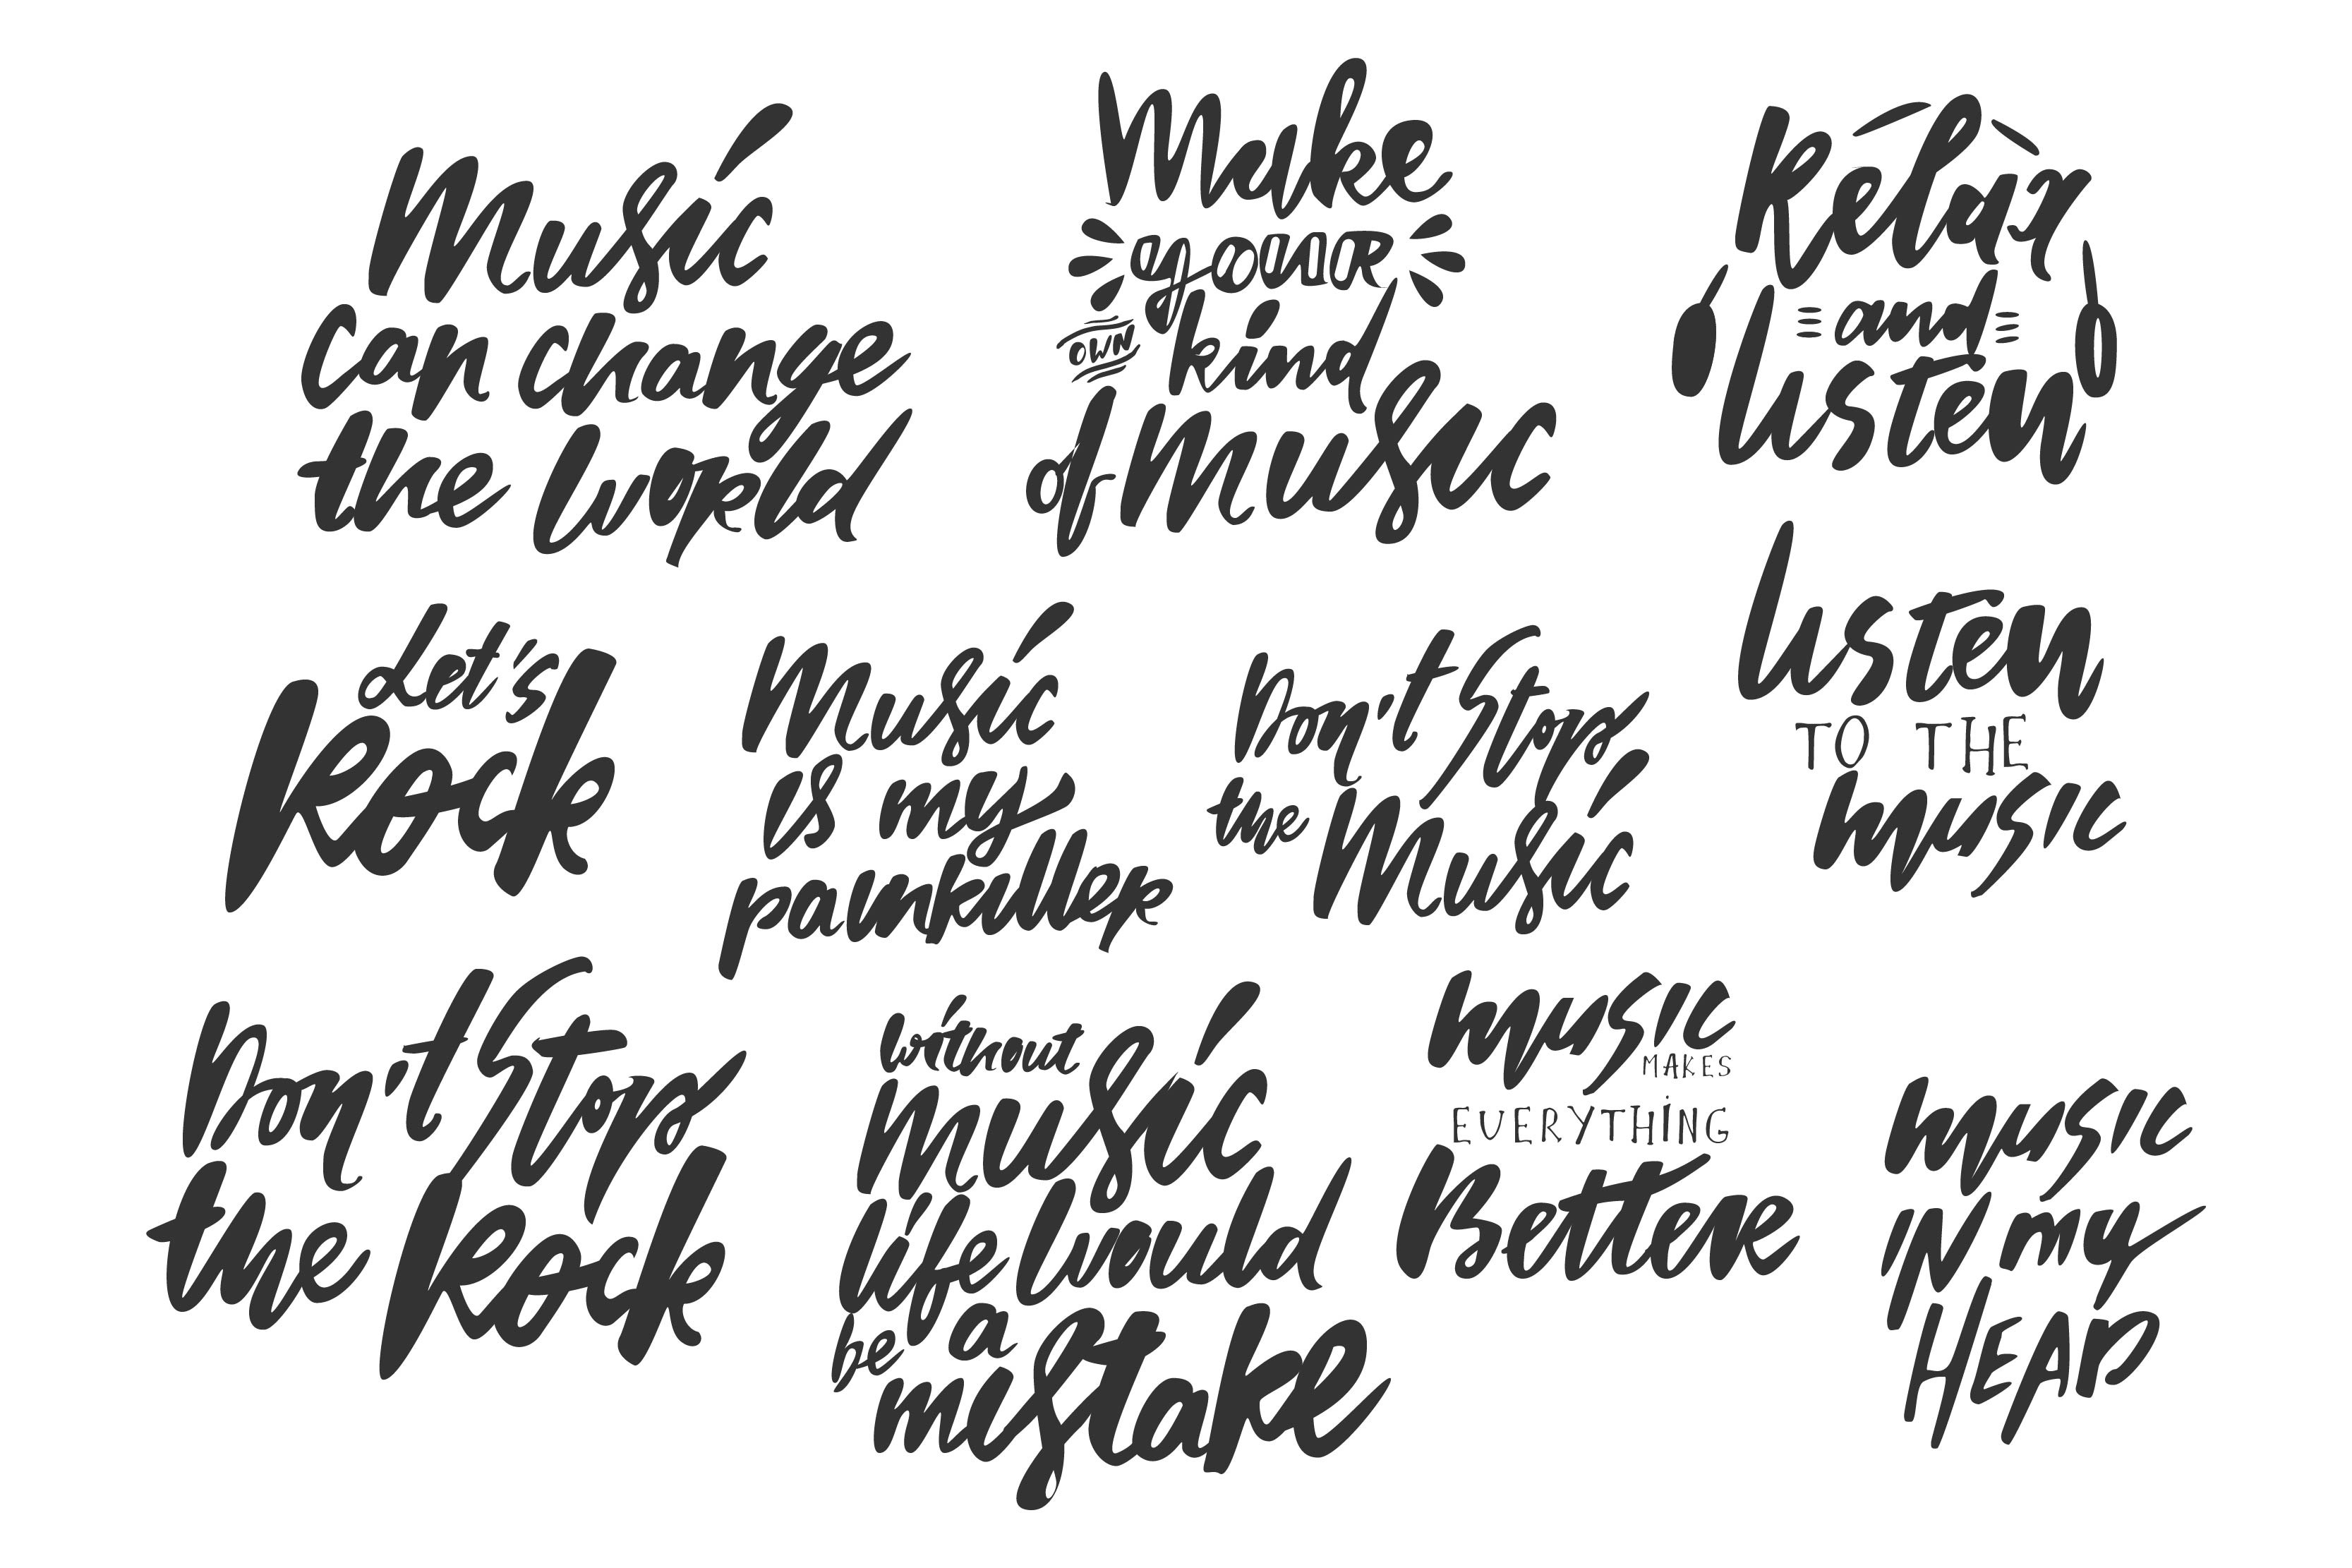 Music
can change
the world
Make
youre
own kind
of Music
Relax
and
listen
Let's
Rock
Music
is my
painkiller
Don't Stop
the
Music
listen
TO THE
music
Don't Stop
the Rock
without
Music
life would
be a
mistake
music
MAKES
EVERYTHING
Better
music
in my
HEAD